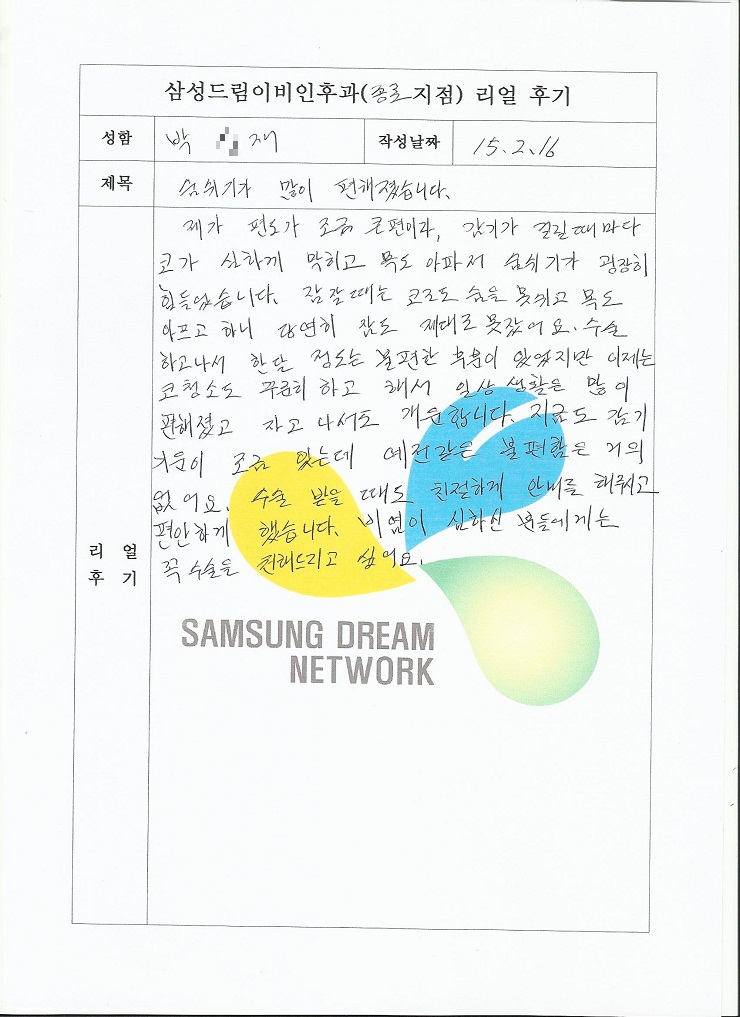 삼성드림이비인후과(종로지점) 리얼 후기
성함 박 재 작성날짜 15.2.16
제목 숨쉬기가 많이 편해졌습니다.
제가 편도가 조금 큰편이라, 감기가 걸릴때마다
코가 심하게 막히고 목도 아파서 숨쉬기가 굉장히
힘들었습니다. 잠잘때는 코로도 숨을 못쉬고 목도
아프고 하니 당연히 잠도 제대로 못잤어요. 수술
하고나서 한달 정도는 불편한 부분이 있었지만 이제는
코청소도 꾸준히 하고 해서 일상 생활은 많이
편해졌고 자고 나서도 개운합니다. 지금도 감기
기운이 조금 있는데 예전같은 불편함은 거의
없어요. 수술 받을 때도 친절하게 안내를 해줘서
편안하게 했습니다. 비염이 심하신 분들에게는
꼭 수술을 전해드리고 싶어요.
리얼
후기
SAMSUNG DREAM
NETWORK